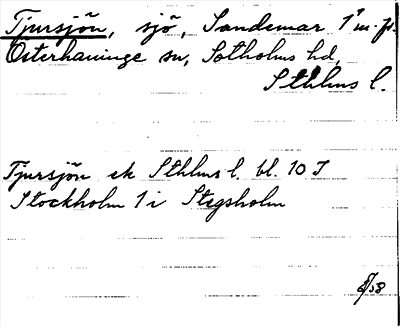 Tjursjön, sjö, Sandemar 1 m. fl.
Österhaninge sn, Sotholms hd,
Sthlms l.
Tjursjön ek Sthlms l. bl. 10 J
Stockholm 1 i Stegsholm
58